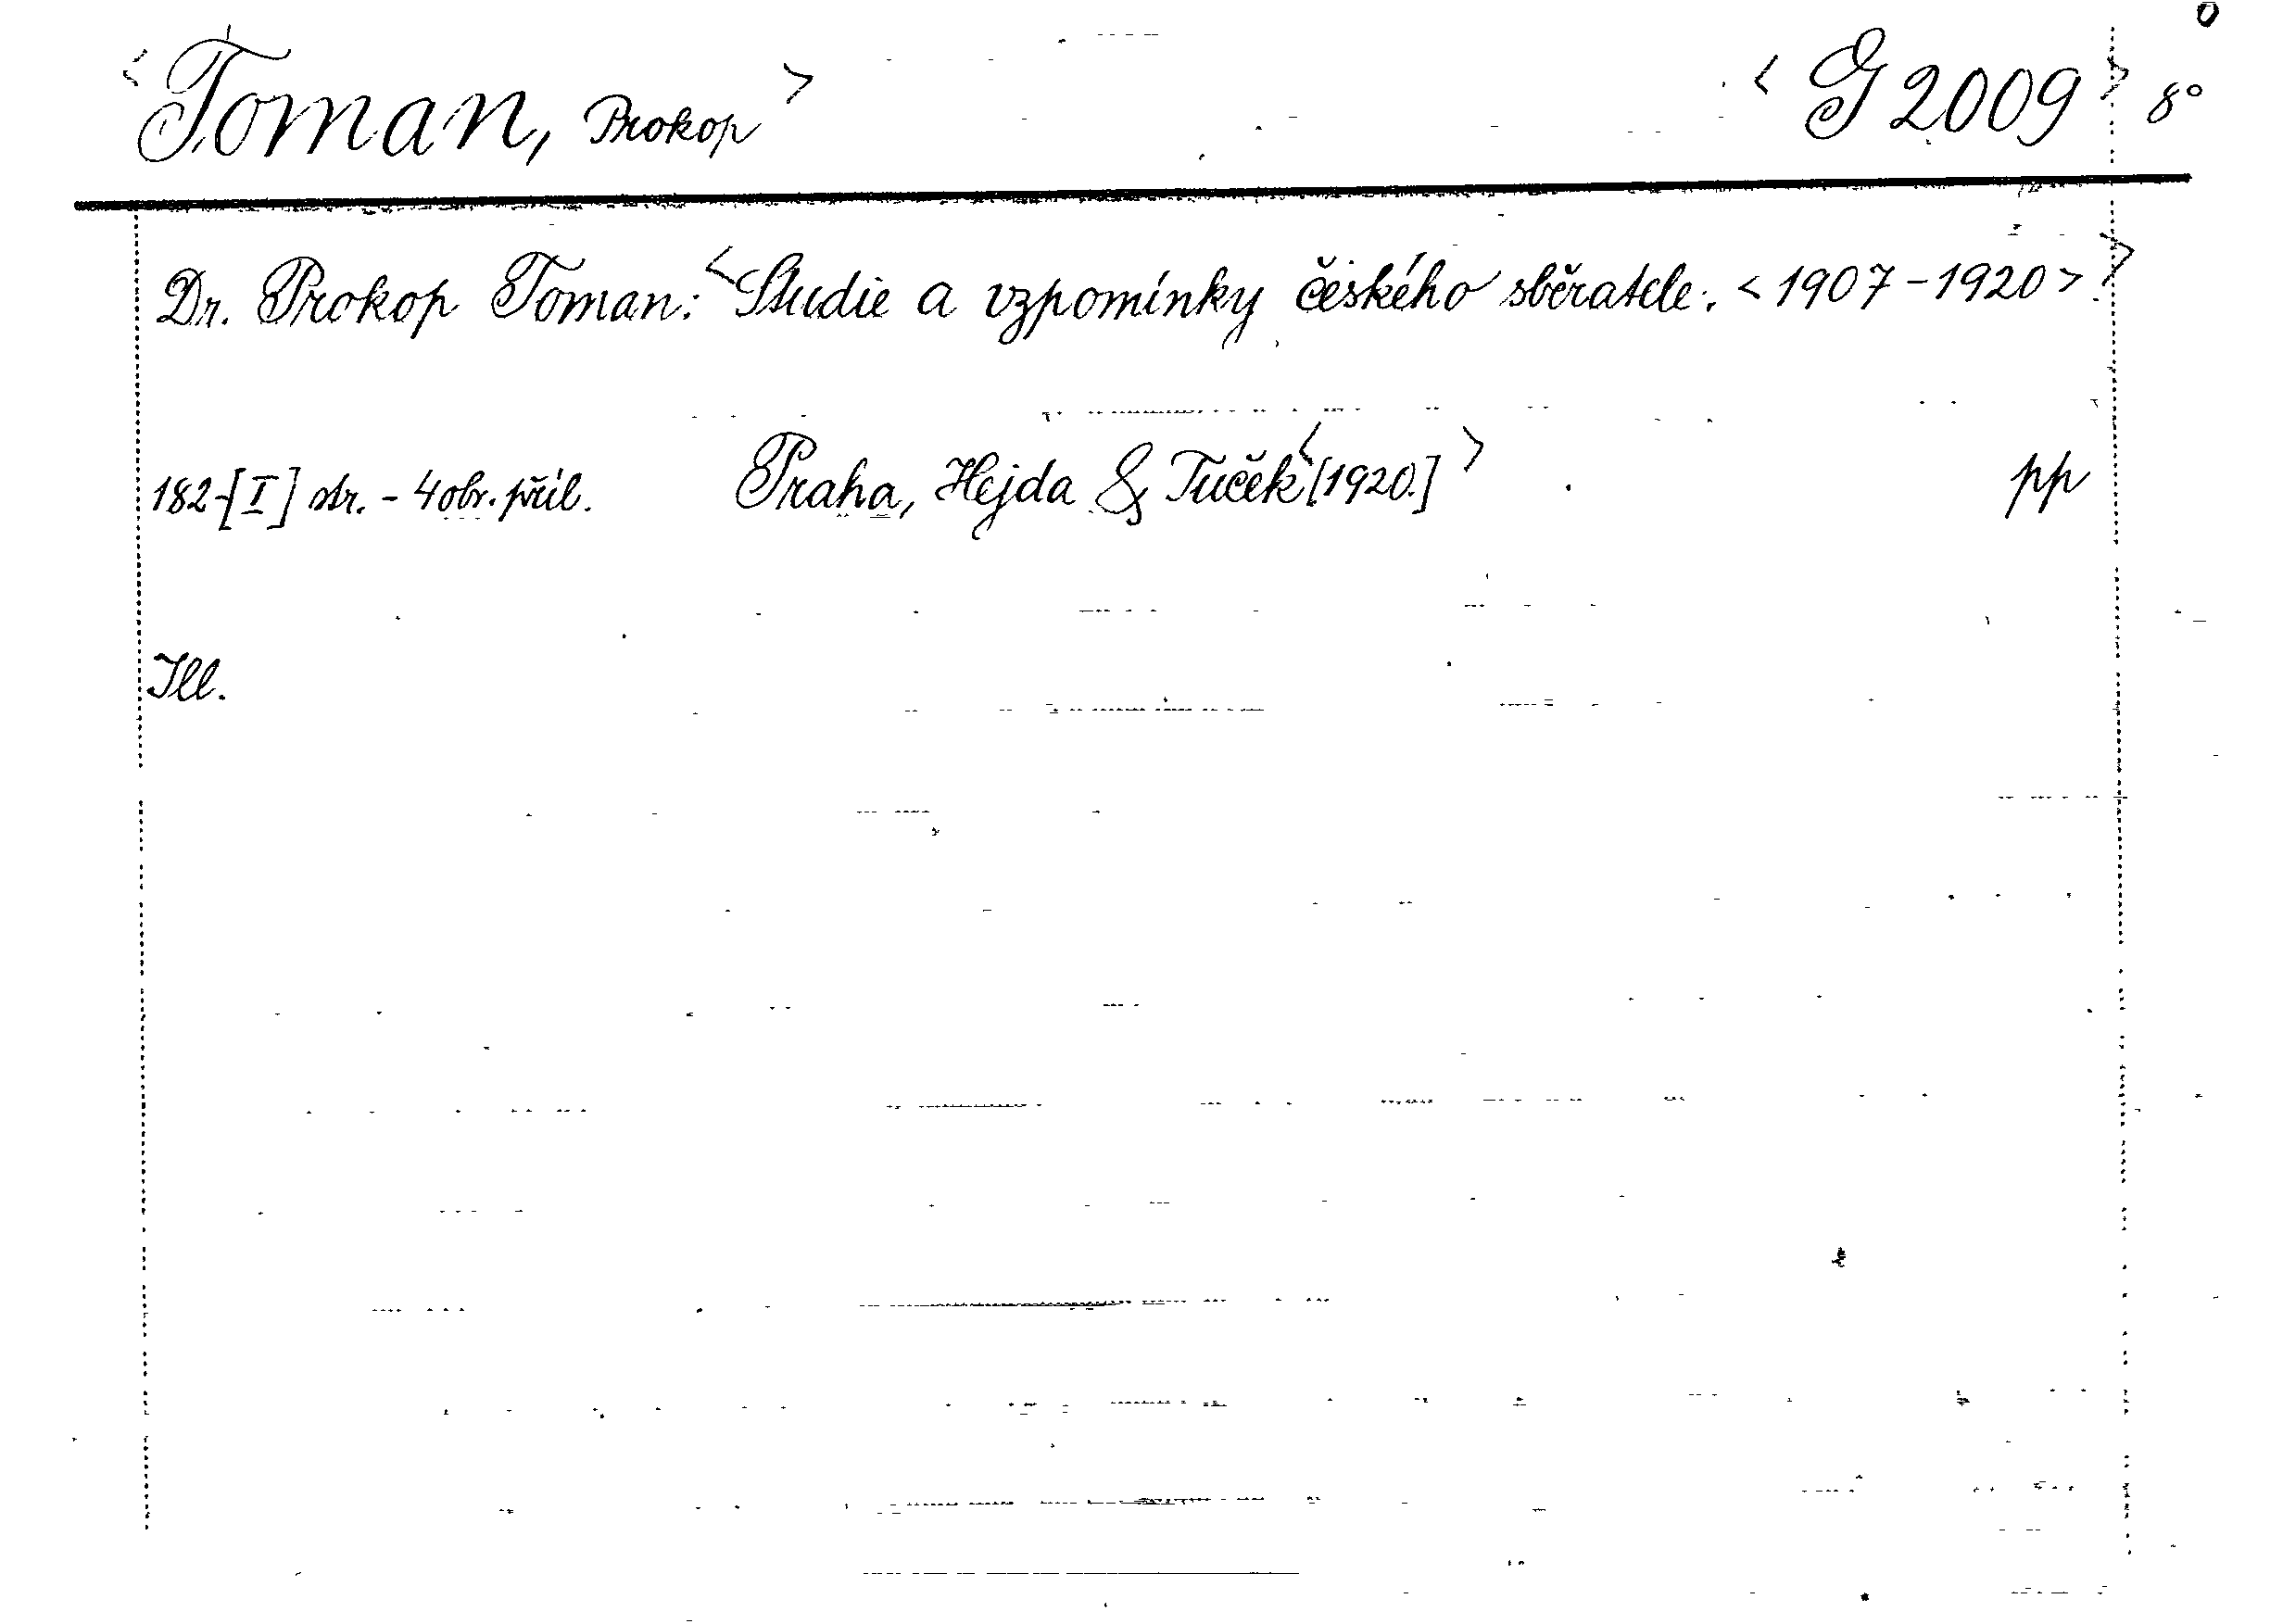 <Toman, Prokop> <G 2009> 8°
Dr. Prokop Toman: <Studie a vzpomínky českého sběratele. <1907-1920>.>
182-[I] str. - 4 obr. příl. Praha, Hejda & Tuček <[1920.]> pp
Ill.